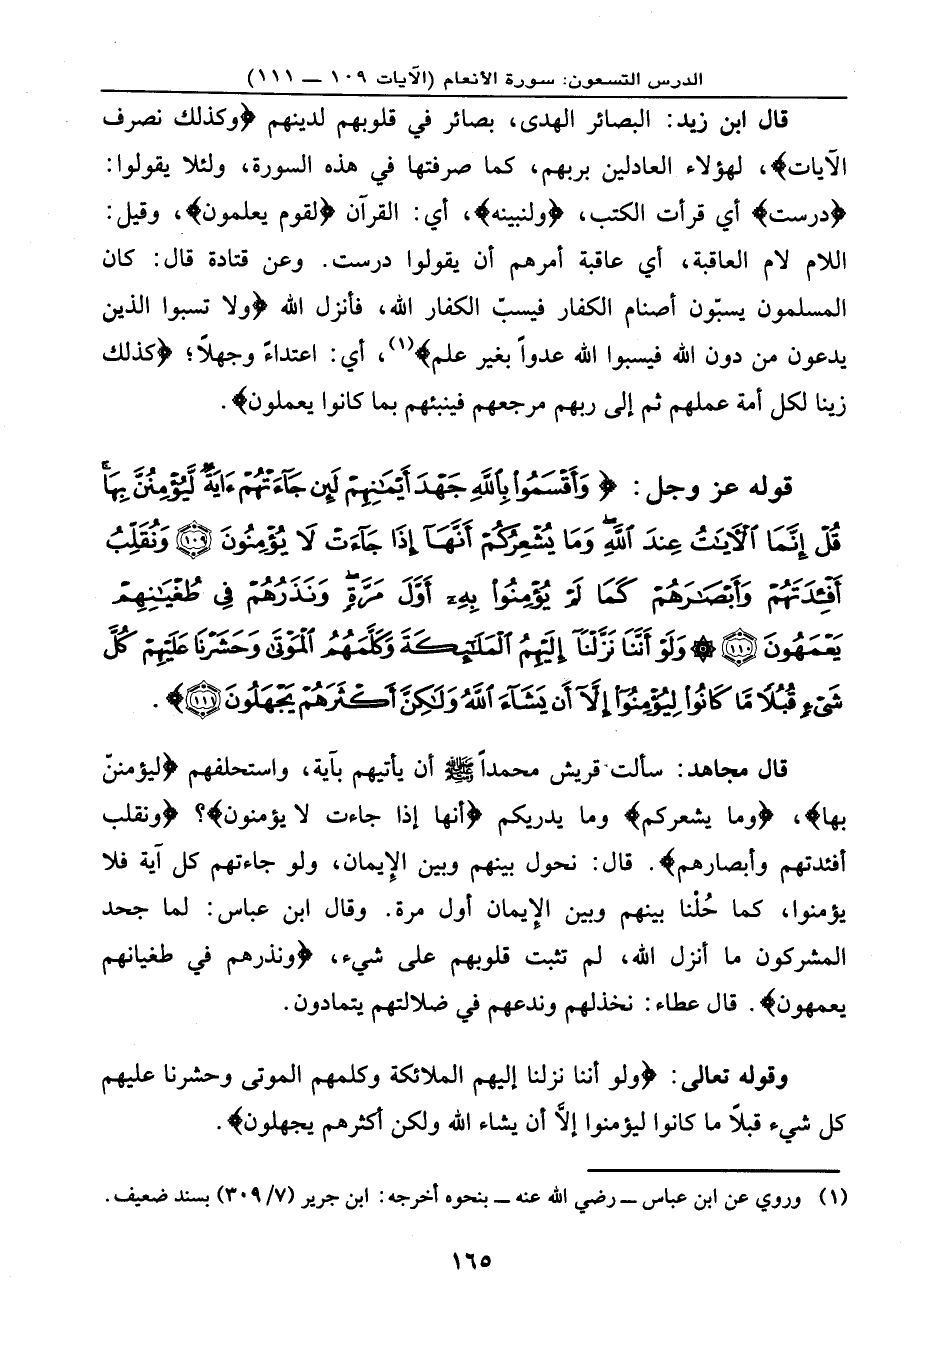 الدرس التسعون: سورة الأنعام (الآيات ١٠٩ — ١١١)
قال ابن زيد: البصائر الهدى، بصائر في قلوبهم لدينهم ﴿وكذلك نصرف
الآيات﴾، لهؤلاء العادلين بربهم، كما صرفتها في هذه السورة، ولئلا يقولوا:
﴿درست﴾ أي قرأت الكتب، ﴿ولنبينه﴾، أي: القرآن ﴿لقوم يعلمون﴾، وقيل:
اللام لام العاقبة، أي عاقبة أمرهم أن يقولوا درست. وعن قتادة قال: كان
المسلمون يسبّون أصنام الكفار فيسبّ الكفار الله، فأنزل الله ﴿ولا تسبوا الذين
يدعون من دون الله فيسبوا الله عدواً بغير علم﴾(١)، أي: اعتداءً وجهلاً؛ ﴿كذلك
زينا لكل أمة عملهم ثم إلى ربهم مرجعهم فينبئهم بما كانوا يعملون﴾.
قوله عز وجل: ﴿وَأَقْسَمُوا۟ بِٱللَّهِ جَهْدَ أَيْمَٰنِهِمْ لَئِن جَآءَتْهُمْ ءَايَةٌۭ لَّيُؤْمِنُنَّ بِهَا ۚ
قُلْ إِنَّمَا ٱلْءَايَٰتُ عِندَ ٱللَّهِ ۖ وَمَا يُشْعِرُكُمْ أَنَّهَآ إِذَا جَآءَتْ لَا يُؤْمِنُونَ ١٠٩ وَنُقَلِّبُ
أَفْـِٔدَتَهُمْ وَأَبْصَٰرَهُمْ كَمَا لَمْ يُؤْمِنُوا۟ بِهِۦٓ أَوَّلَ مَرَّةٍۢ وَنَذَرُهُمْ فِى طُغْيَٰنِهِمْ
يَعْمَهُونَ ١١٠ ۞ وَلَوْ أَنَّنَا نَزَّلْنَآ إِلَيْهِمُ ٱلْمَلَٰٓئِكَةَ وَكَلَّمَهُمُ ٱلْمَوْتَىٰ وَحَشَرْنَا عَلَيْهِمْ كُلَّ
شَىْءٍۢ قُبُلًۭا مَّا كَانُوا۟ لِيُؤْمِنُوٓا۟ إِلَّآ أَن يَشَآءَ ٱللَّهُ وَلَٰكِنَّ أَكْثَرَهُمْ يَجْهَلُونَ ١١١﴾.
قال مجاهد: سألت قريش محمداً ﷺ أن يأتيهم بآية، واستحلفهم ﴿ليؤمننّ
بها﴾، ﴿وما يشعركم﴾ وما يدريكم ﴿أنها إذا جاءت لا يؤمنون﴾؟ ﴿ونقلب
أفئدتهم وأبصارهم﴾. قال: نحول بينهم وبين الإيمان، ولو جاءتهم كل آية فلا
يؤمنوا، كما حُلْنا بينهم وبين الإيمان أول مرة. وقال ابن عباس: لما جحد
المشركون ما أنزل الله، لم تثبت قلوبهم على شيء، ﴿ونذرهم في طغيانهم
يعمهون﴾. قال عطاء: نخذلهم وندعهم في ضلالتهم يتمادون.
وقوله تعالى: ﴿ولو أننا نزلنا إليهم الملائكة وكلمهم الموتى وحشرنا عليهم
كل شيء قبلاً ما كانوا ليؤمنوا إلاَّ أن يشاء الله ولكن أكثرهم يجهلون﴾.
(١) وروي عن ابن عباس — رضي الله عنه — بنحوه أخرجه: ابن جرير (٣٠٩/٧) بسند ضعيف.
١٦٥